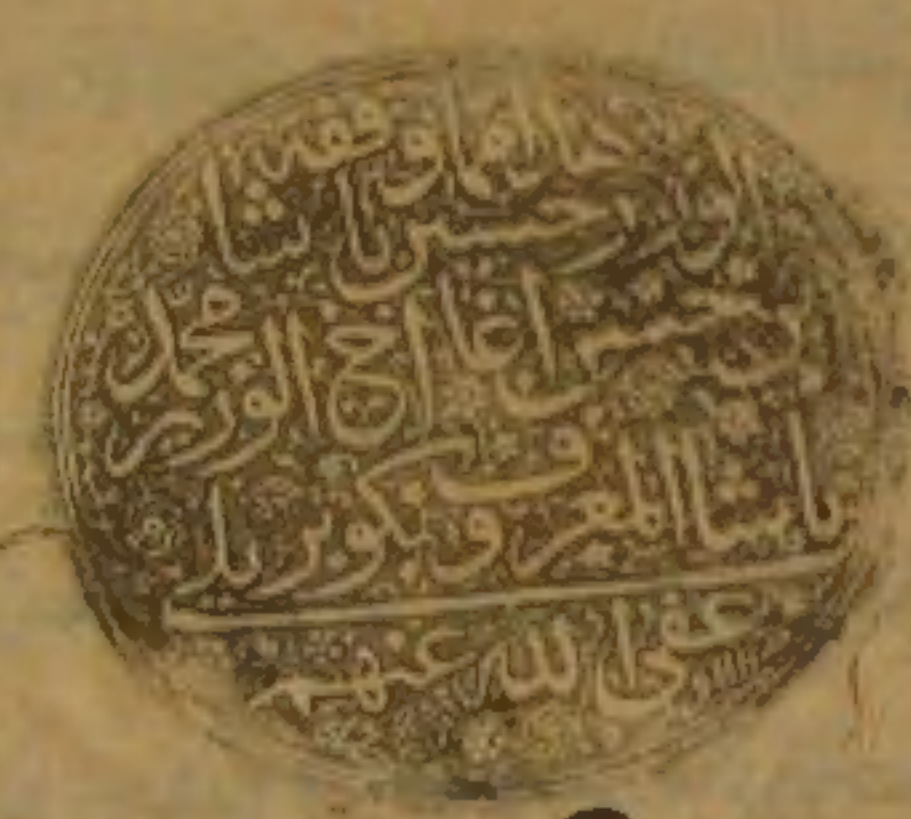 وقفه
الوزير حسين باشا
بن حسن اغا اخ الوزير محمد
باشا المعروف بكوبريلي
عفى الله عنهم